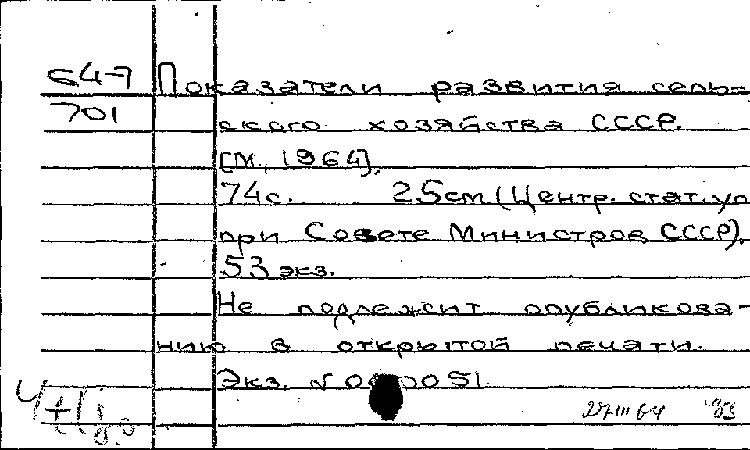 64-7 Показатели развития сель=
701 ского хозяйства СССР.
[М., 1964].
74с. 25см (Центр. стат. уп
при Совете Министров СССР).
53 экз.
Не подлежит опубликова-
нию в открытой печати.
Экз. №
27 III 64